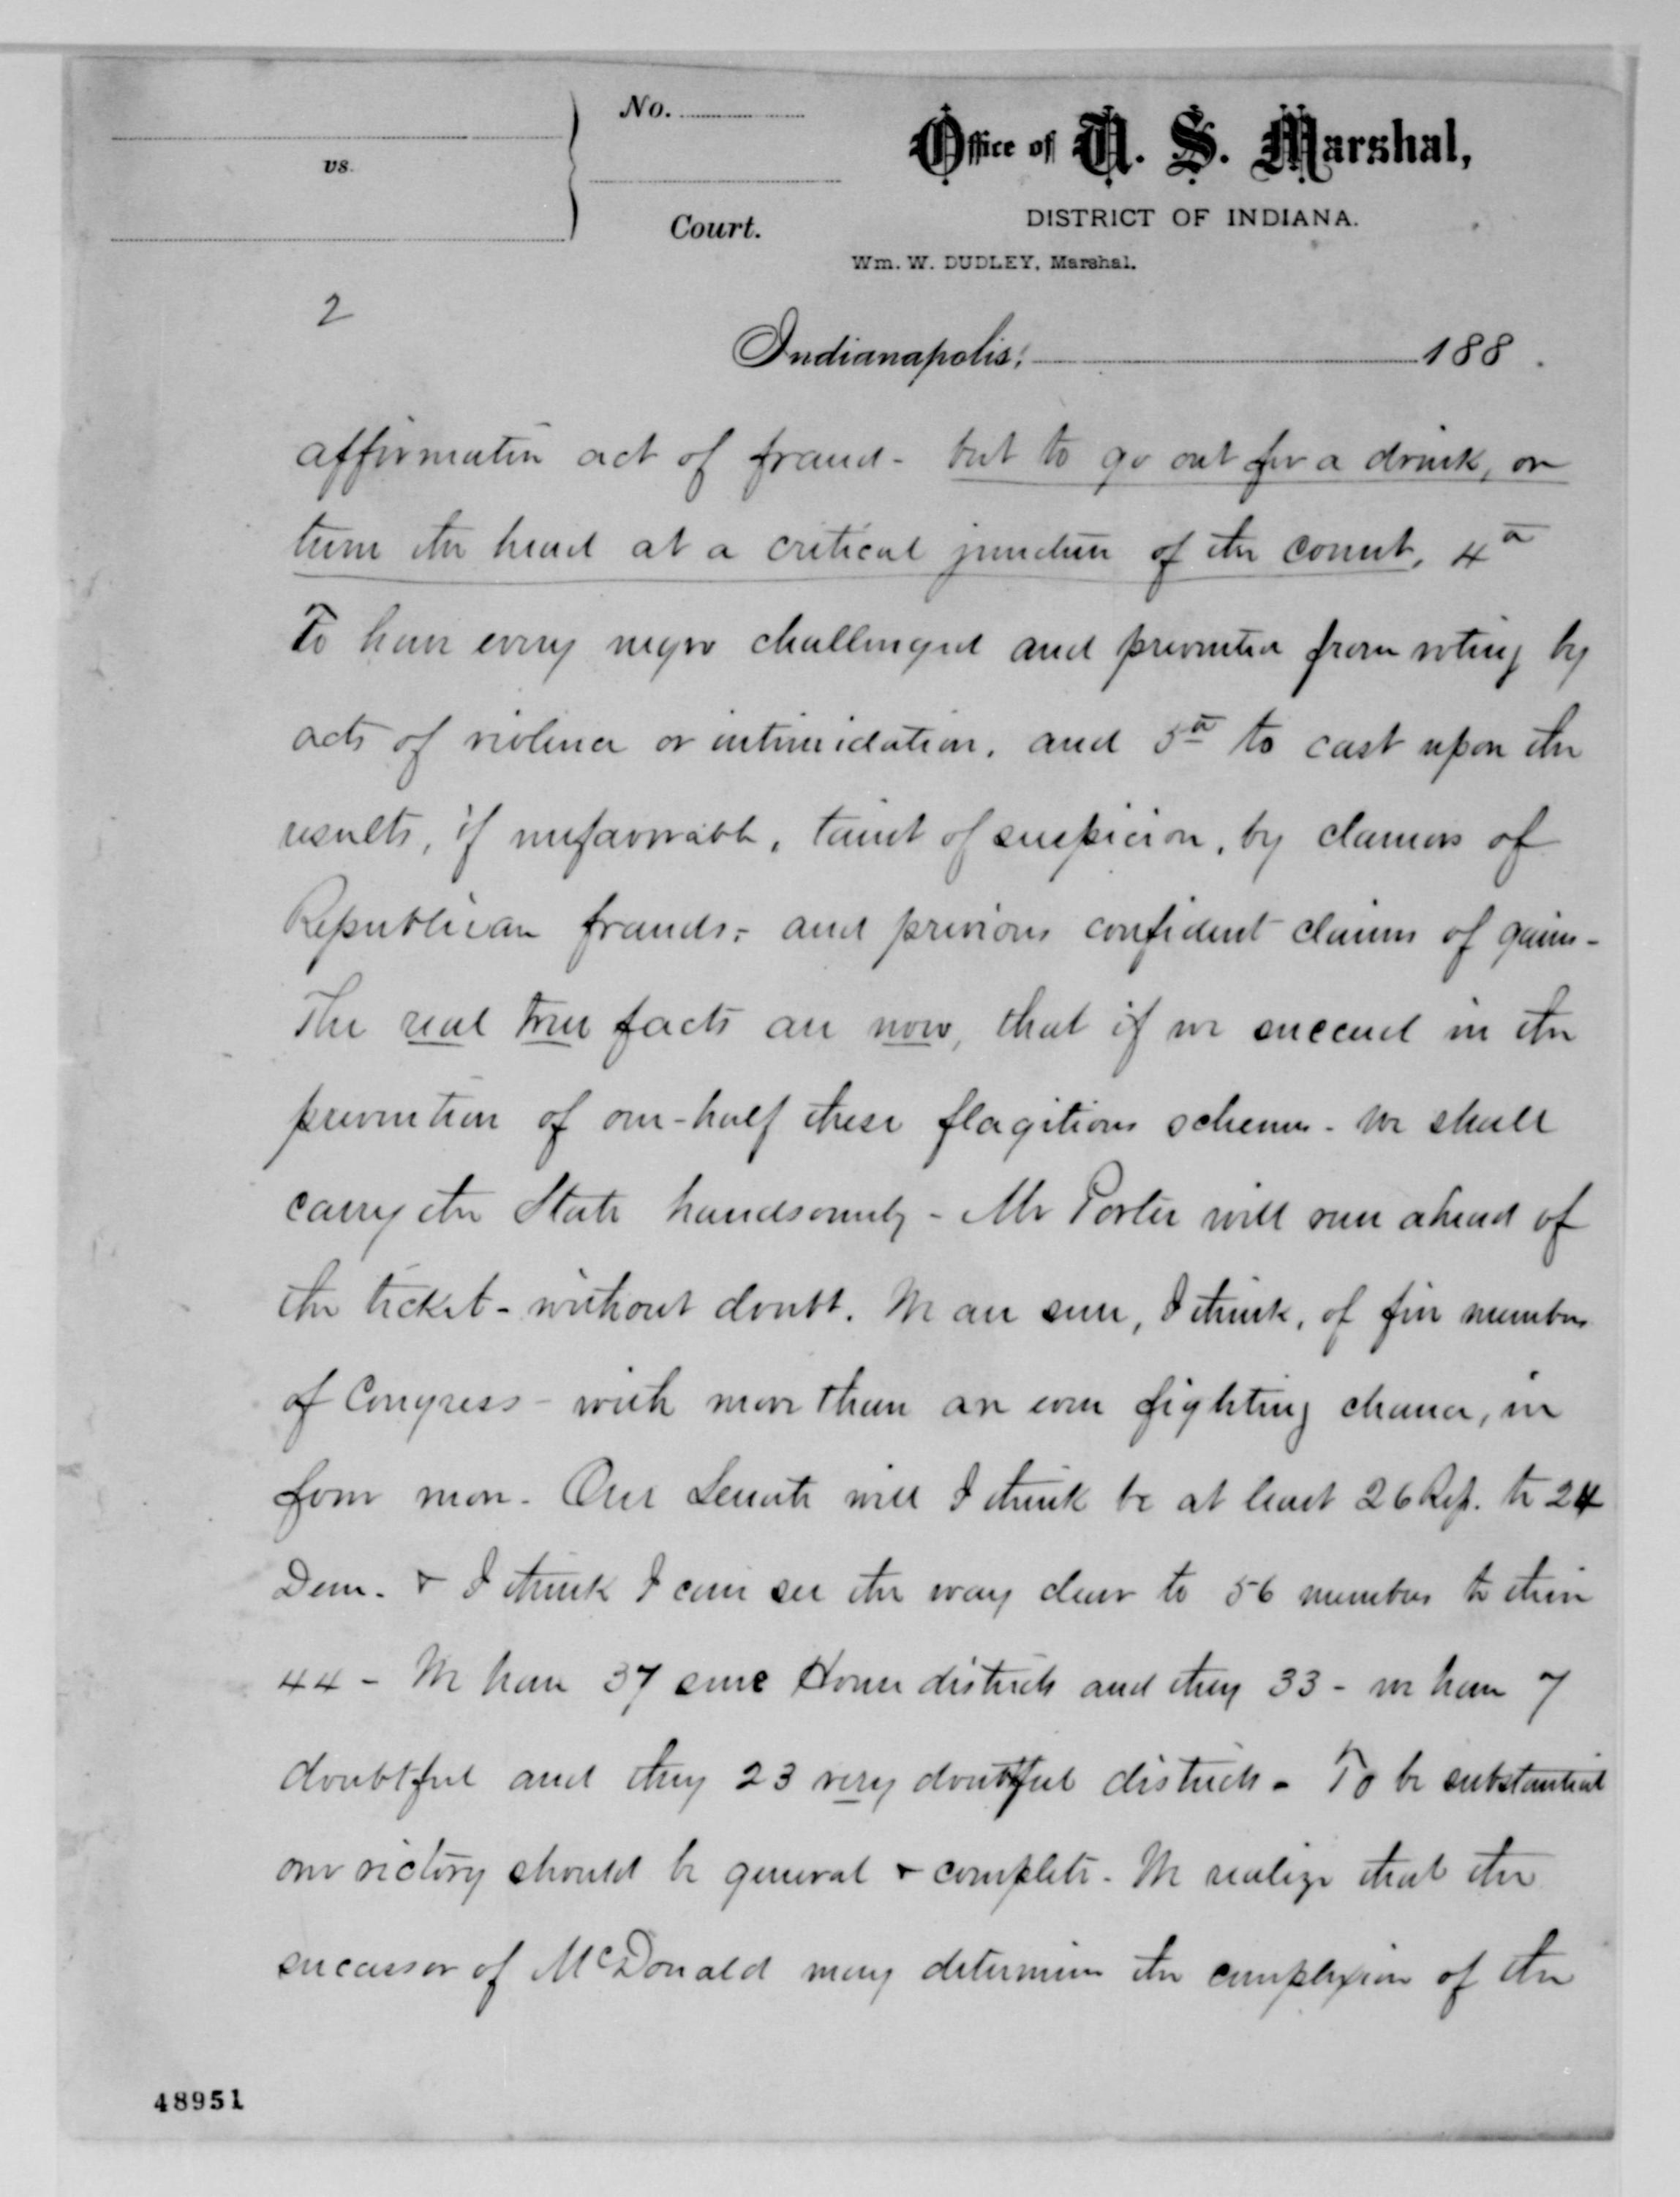 No.
vs.
Court.
Office of U. S. Marshal,
DISTRICT OF INDIANA.
Wm. W. DUDLEY, Marshal.
2
Indianapolis, 188 .
affirmative act of fraud - but to go out for a drink, or
turn the head at a critical juncture of the count, 4th
To have every negro challenged and prevented from voting by
acts of violence or intimidation, and 5th to cast upon the
results, if unfavorable, taint of suspicion, by clamors of
Republican frauds, - and previous confident claims of gains -
The real true facts are now, that if we succeed in the
prevention of one-half these flagitious schemes - we shall
carry the State handsomely - Mr Porter will run ahead of
the ticket - without doubt. We are sure, I think, of five members
of Congress - with more than an even fighting chance, in
four more - Our Senate will I think be at least 26 Rep. to 24
Dem. & I think I can see the way clear to 56 members to their
44 - We have 37 sure House districts and they 33 - we have 7
doubtful and they 23 very doubtful districts - To be substantial
our victory should be general & complete - We realize that the
successor of McDonald may determine the complexion of the
48951